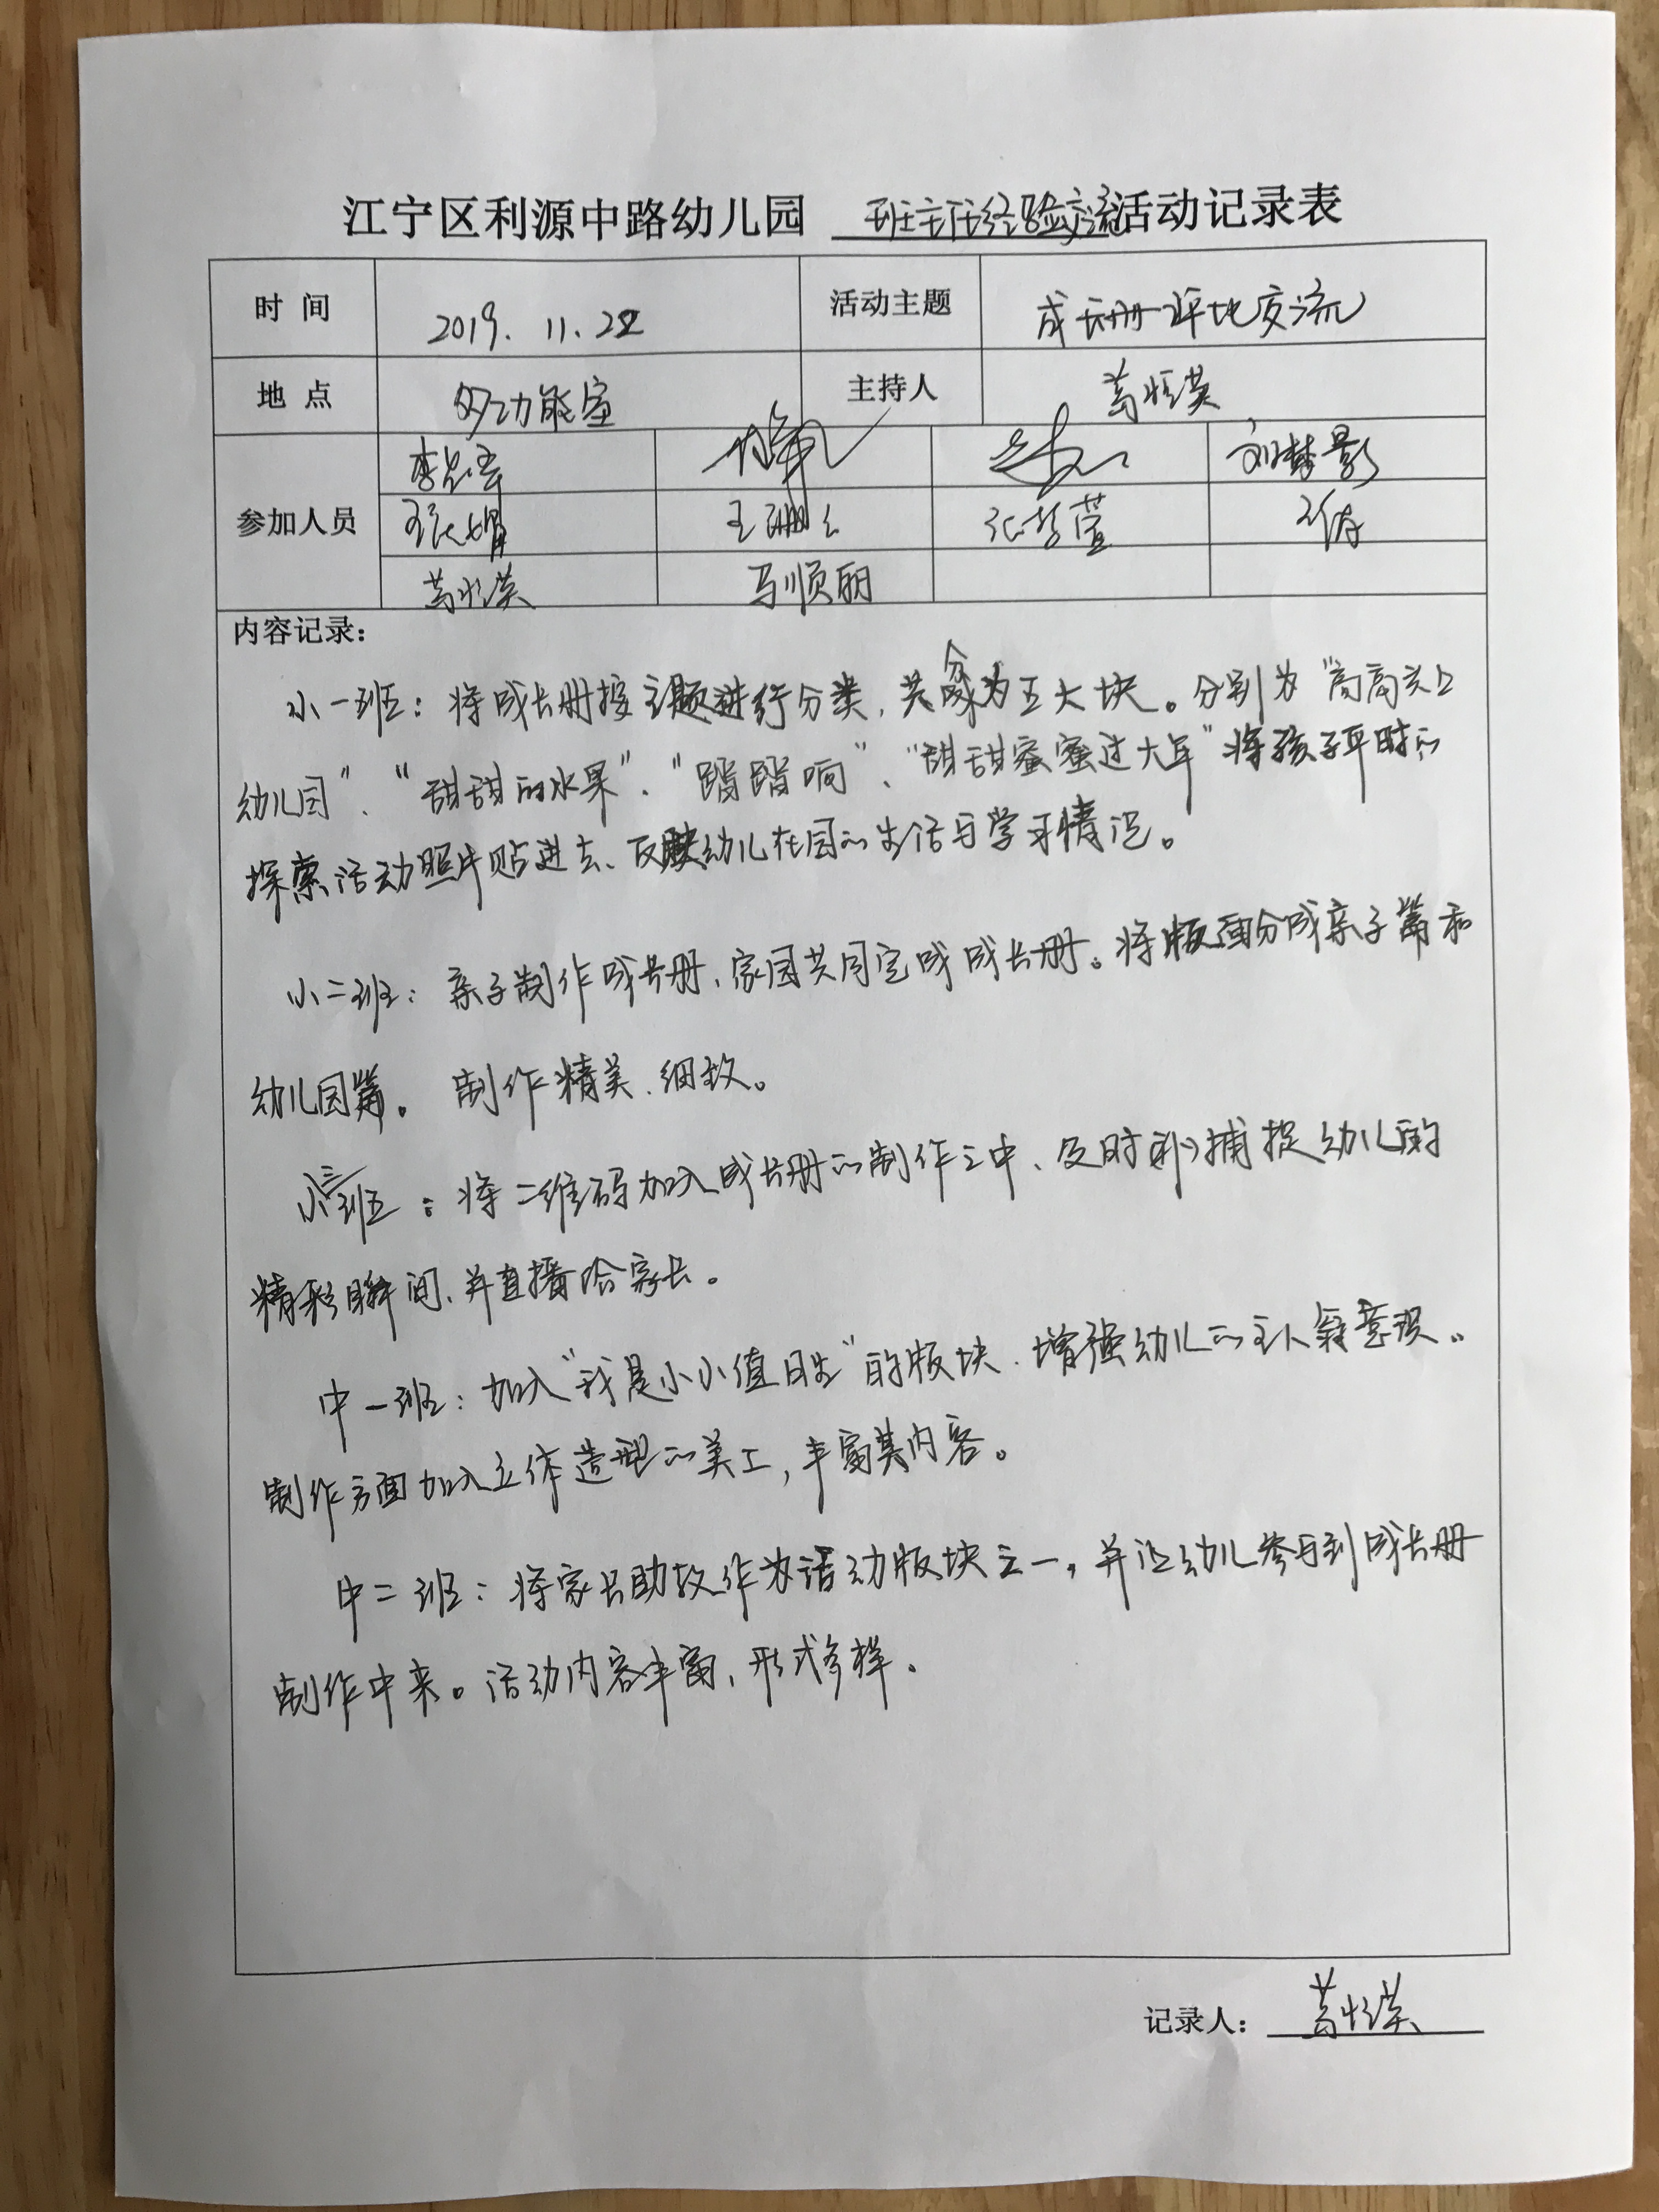 江宁区利源中路幼儿园 班主任经验交流活动记录表
时 间 2019. 11. 22 活动主题 成长册评比交流
地 点 多功能室 主持人 葛恒英
参加人员 刘梦影
王珊 张哲萱
马顺丽
内容记录：
小一班：将成长册按主题进行分类，共分为五大块。分别为“高高兴兴上
幼儿园”、“甜甜的水果”、“踏踏响”、“甜甜蜜蜜过大年”将孩子平时的
探索活动照片贴进去、反映幼儿在园的生活与学习情况。
小二班：亲子制作成长册，家园共同完成成长册。将版面分成亲子篇和
幼儿园篇。 制作精美、细致。
小三班：将二维码加入成长册的制作之中、及时的捕捉幼儿的
精彩瞬间、并直播给家长。
中一班：加入“我是小小值日生”的版块、增强幼儿的主人翁意识。
制作方面加入立体造型的美工，丰富其内容。
中二班：将家长助教作为活动版块之一，并让幼儿参与到成长册
制作中来。活动内容丰富，形式多样。
记录人：葛恒英